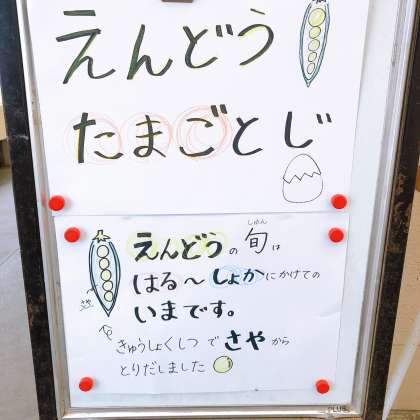 えんどう
たまごとじ
しゅん
えんどうの旬は
はる〜しょかにかけての
いまです。
さや
きゅうしょくしつでさやから
とりだしました
PLUS